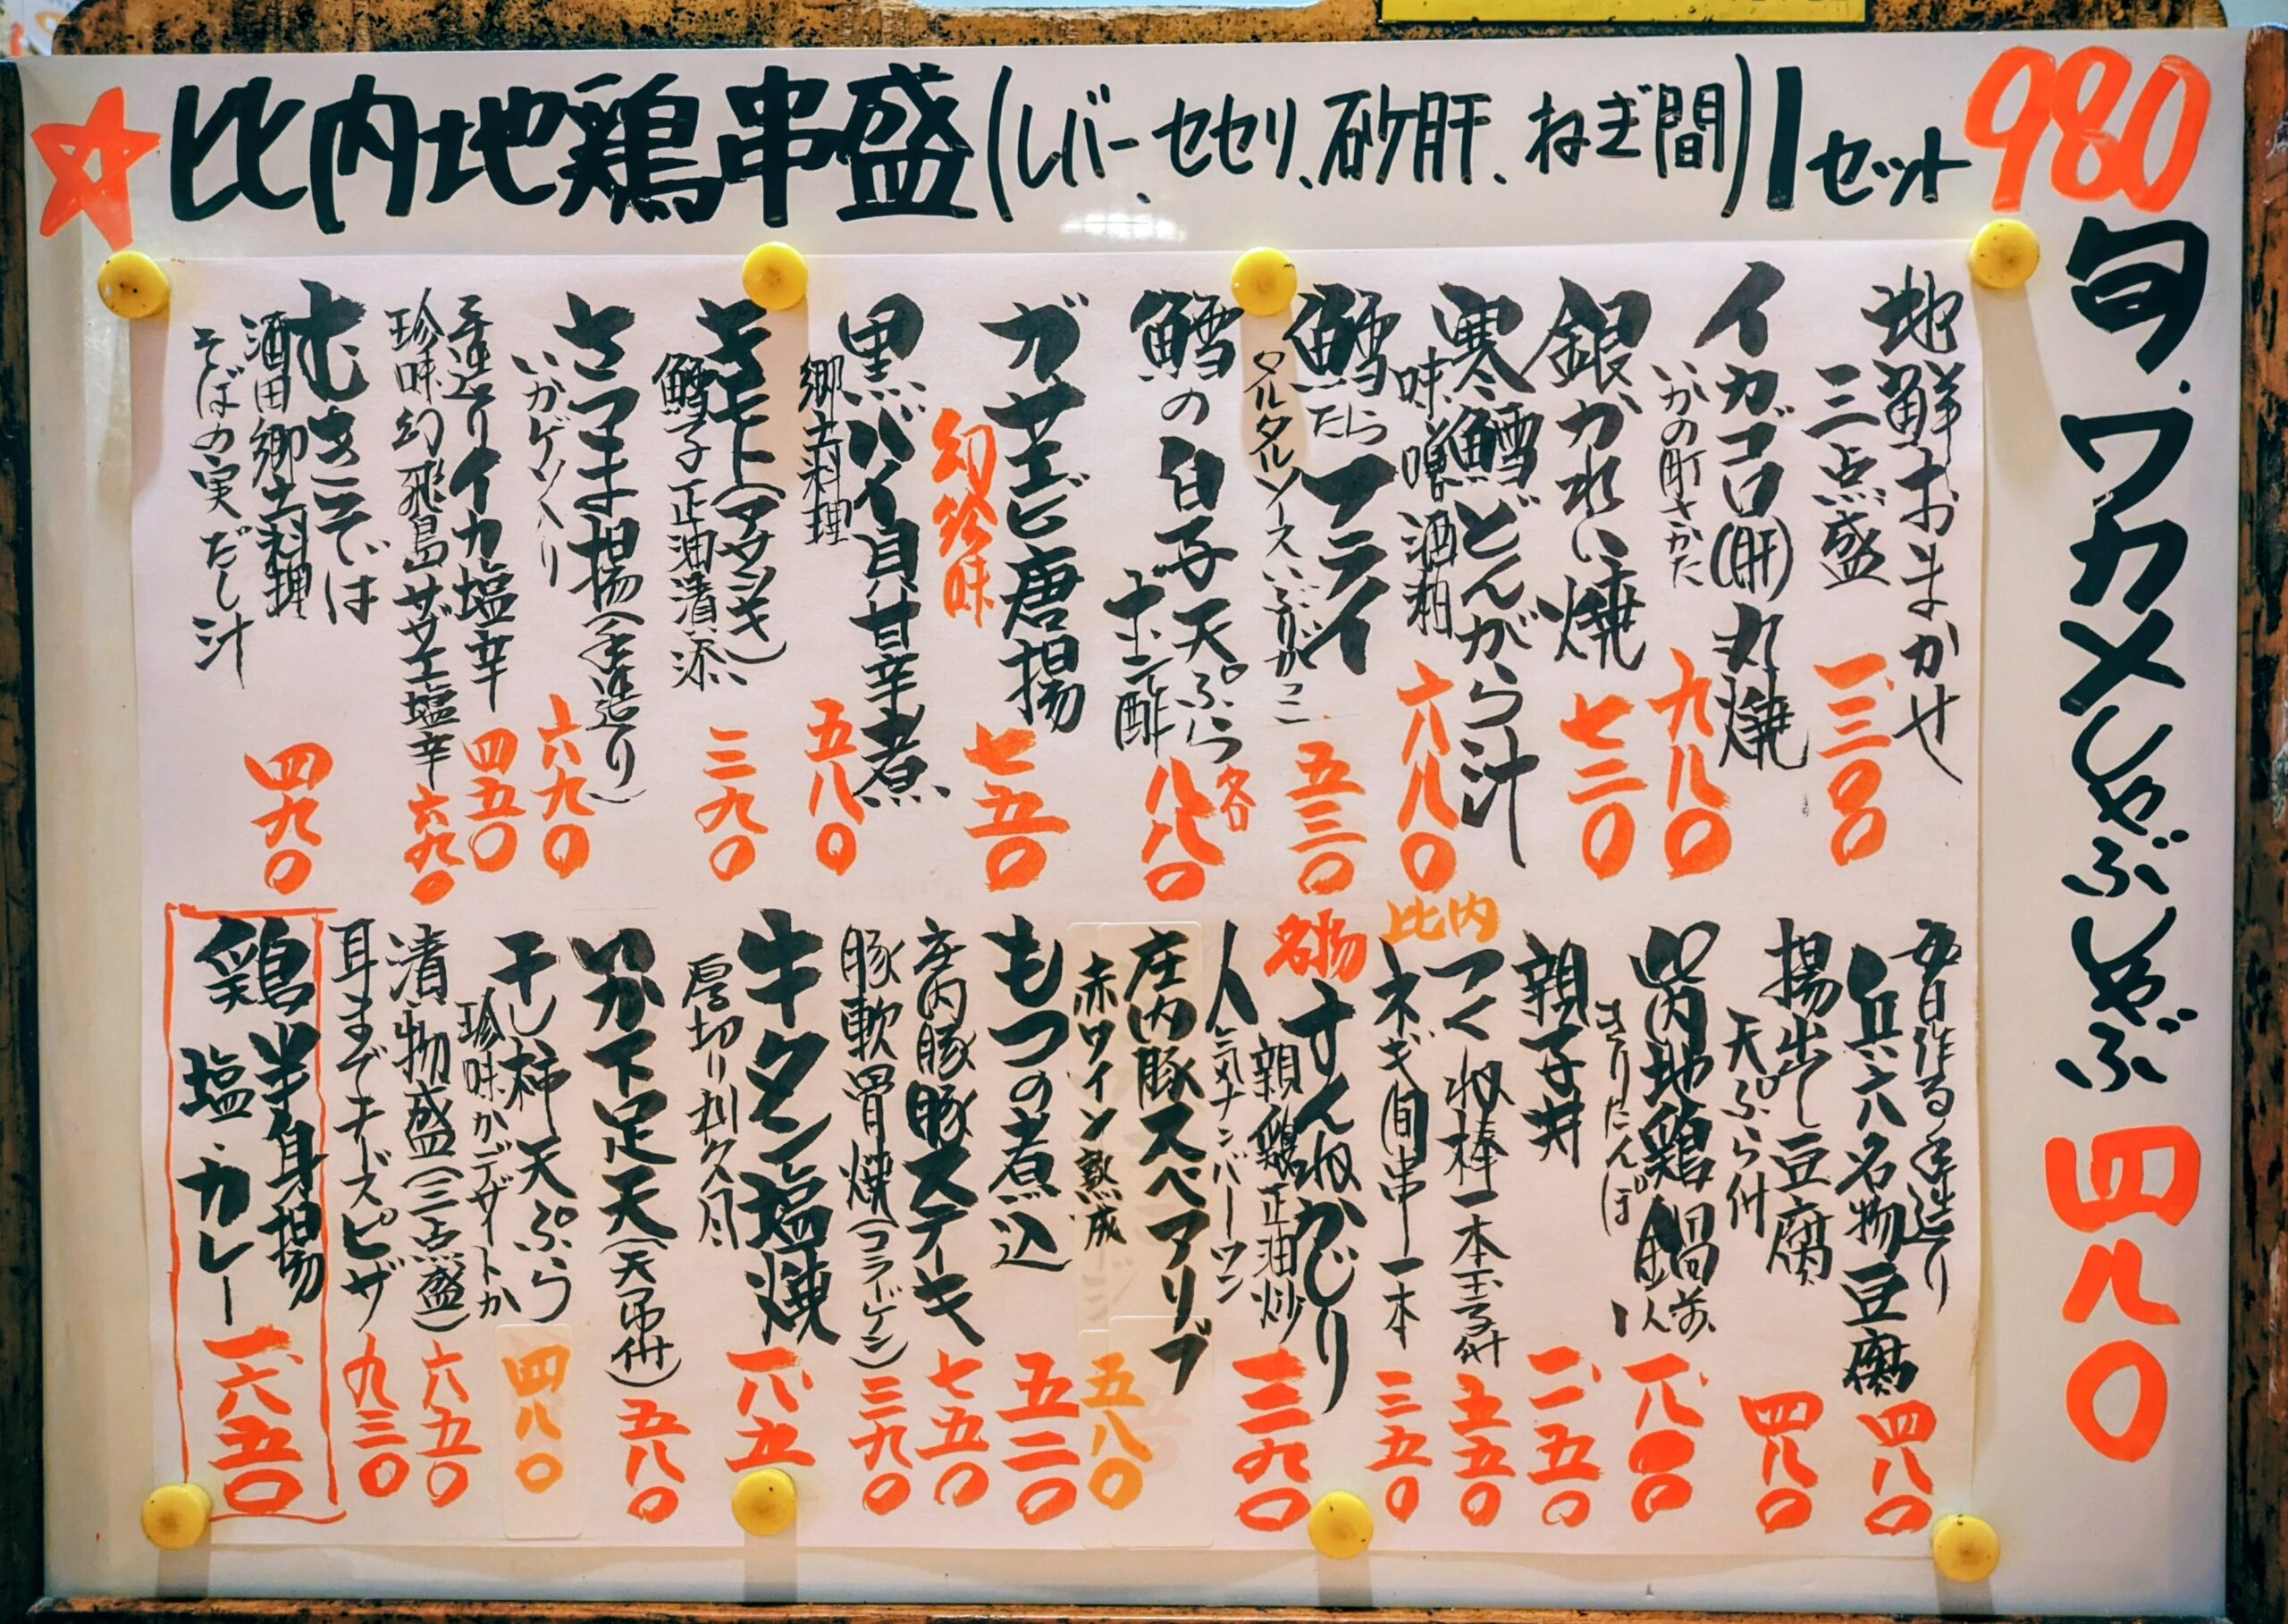 ☆比内地鶏串盛(レバー、セセリ、砂肝、ねぎ間)1セット980
旬、ワカメしゃぶしゃぶ 四八〇
地鮮おまかせ
三点盛 一三〇〇
イカゴロ(肝)丸焼
いかの町さかた 九八〇
銀かれい焼 七三〇
寒鱈どんがら汁
味噌酒粕 六八〇
鱈フライ
たら
タルタルソース 五三〇
鱈の白子天ぷら
ポン酢 各八八〇
ガサエビ唐揚
幻珍味 七五〇
黒バイ貝甘辛煮
郷土料理 五八〇
(アサツキ)
鱈子正油漬添 三九〇
さつま揚(手造り)
いかゲソ入り 六九〇
手造りイカ塩辛 四五〇
珍味幻飛島サザエ塩辛 六九〇
むきそば
酒田郷土料理
そばの実だし汁 四九〇
手造り
兵六名物豆腐 四八〇
揚出し豆腐
天ぷら付 四八〇
比内地鶏鍋
きりたんぽ 一八〇〇
親子丼 一一五〇
比内
つくね棒一本玉子付 五五〇
ネギ間串一本 三五〇
名物
すんねかじり
親鶏正油炒
人気ナンバーワン 一三九〇
庄内豚スペアリブ
赤ワイン熟成 五八〇
もつの煮込 五二〇
庄内豚豚ステーキ 七五〇
豚軟骨焼(コラーゲン) 三九〇
牛タン塩焼
厚切り利久風 一八五
下足天(天吊付) 五八〇
干し柿天ぷら
珍味かデザートか 四八〇
漬物盛(三点盛) 六五〇
耳までチーズピザ 九三〇
鶏半身揚
塩・カレー 一六五〇